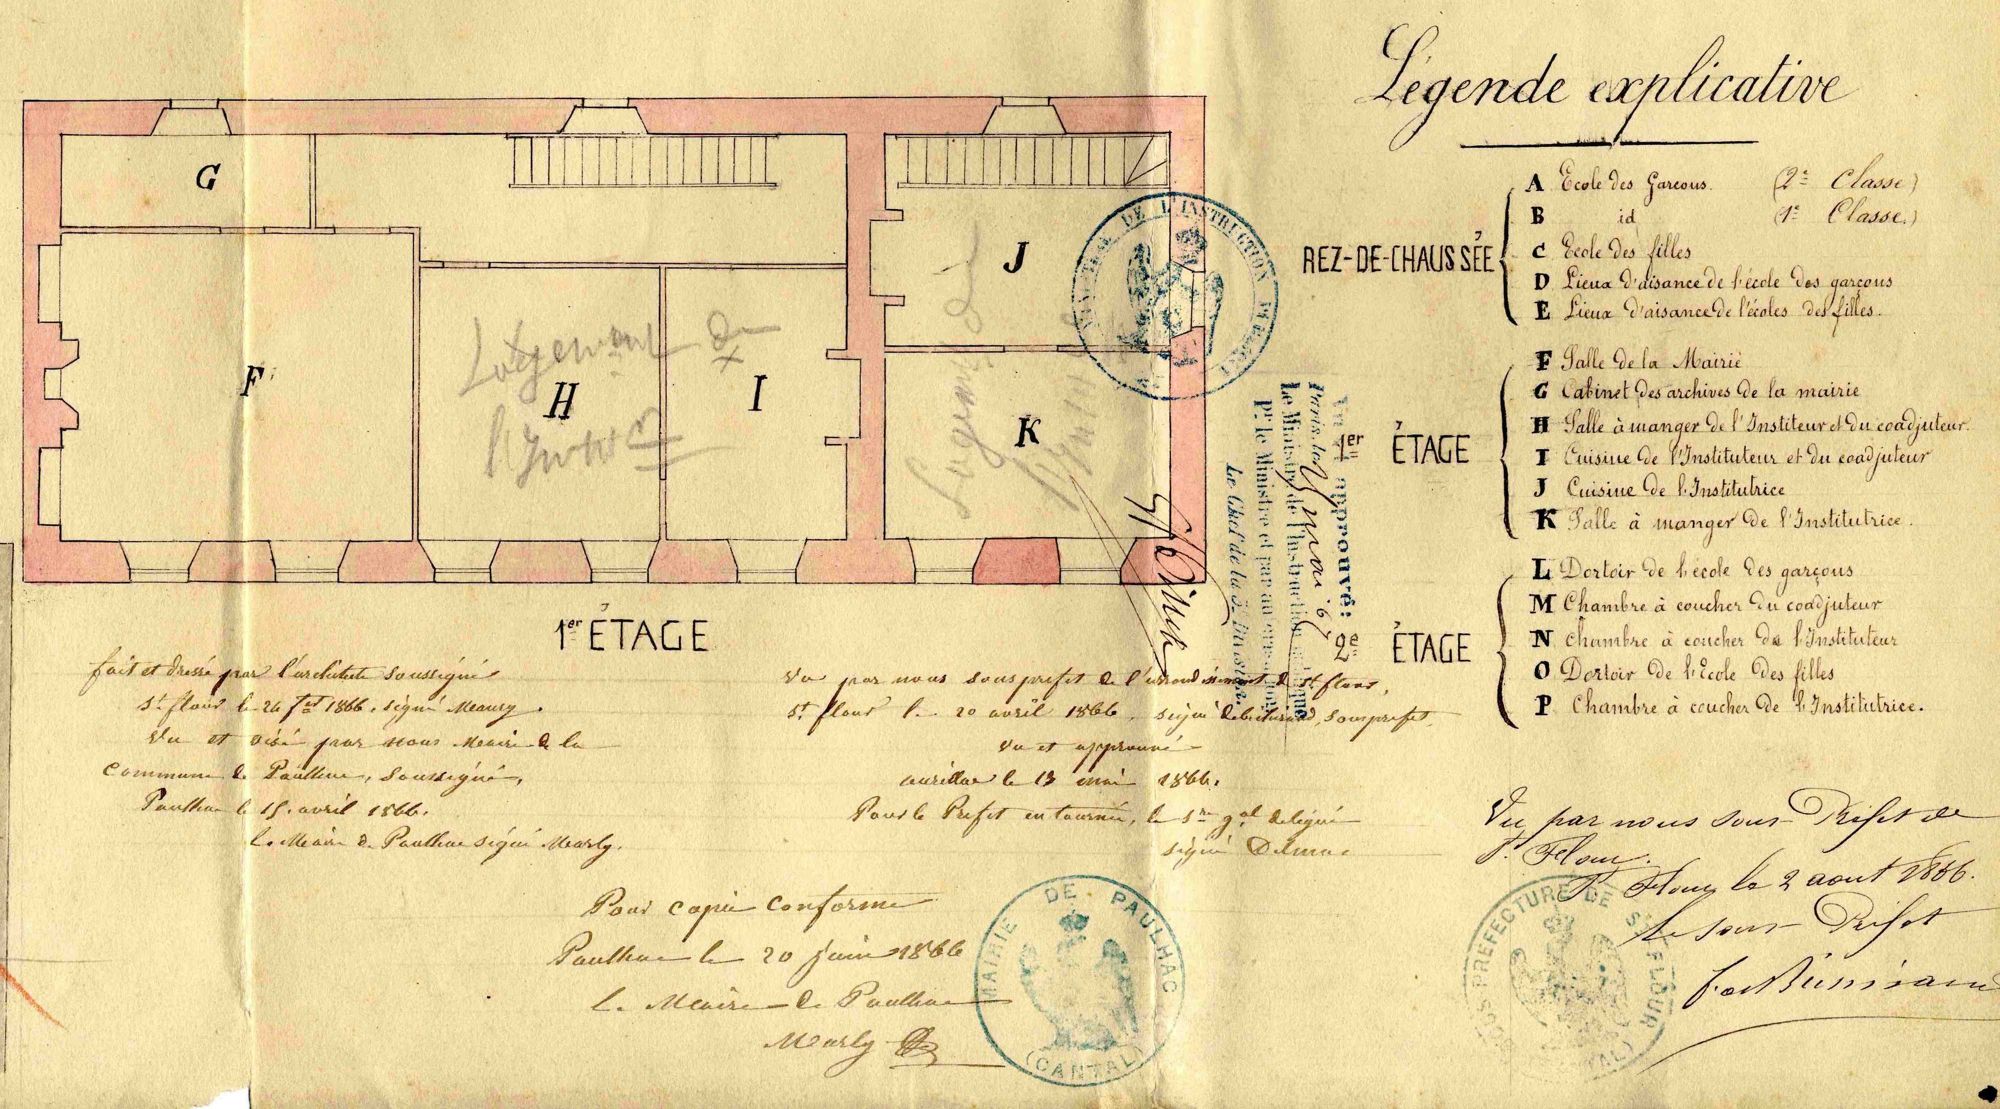 Légende explicative
REZ-DE-CHAUSSÉE
A Ecole des Garçons. (2e Classe)
B id (1e Classe.)
C Ecole des filles
D Lieux d'aisance de l'école des garçons
E Lieux d'aisance de l'écoles des filles.
1er ÉTAGE
F Salle de la Mairie
G Cabinet des archives de la mairie
H Salle à manger de l'Instituteur et du coadjuteur.
I Cuisine de l'Instituteur et du coadjuteur
J Cuisine de l'Institutrice
K Salle à manger de l'Institutrice.
2e ÉTAGE
L Dortoir de l'école des garçons
M Chambre à coucher du coadjuteur
N Chambre à coucher de l'Instituteur
O Dortoir de l'Ecole des filles
P Chambre à coucher de l'Institutrice.
G
F
H
I
J
K
Logement de
Logement de
1er ÉTAGE
fait et dressé par l'architecte soussigné
St flour le 26 1866. signé Maury.
Vu et visé par nous Maire de la
commune de Paulhac, soussigné,
Paulhac le 15 avril 1866.
le Maire de Paulhac signé Marly.
Vu par nous sous prefet de l'arrondissement de St flour,
St flour le 20 avril 1866. signé sous prefet.
Vu et approuvé
aurillac le 13 mai 1866.
Pour le Préfet en tournée, le Sre gal délégué
signé
Pour copie conforme
Paulhac le 20 juin 1866
le Maire de Paulhac
Marly
MAIRIE DE PAULHAC
(CANTAL)
Vu et approuvé:
Paris, le
Le Ministre de l'Instruction publique
Pr le Ministre et par
Le Chef de la Division,
DE L'INSTRUCTION
Vu par nous sous Préfet de
St Flour.
St Flour le 2 aout 1866.
Le sous Préfet
SOUS PREFECTURE DE ST FLOUR